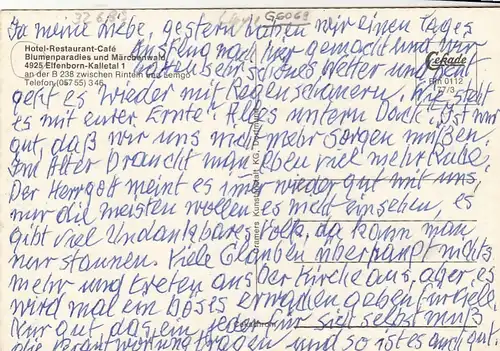 32689 G6069
Ja meine Liebe, gestern haben wir einen Tages
Hotel-Restaurant-Café
Blumenparadies und Märchenwald
4925 Elfenborn-Kalletal 1
an der B 238 zwischen Rinteln und Lemgo
Telefon (05755) 346
Ausflug nach hier gemacht und wir
hatten sehr schönes Wetter und heut
Cekade
Bm 0112
77/3
geht es wieder mit Regenschauern. Wie steht
es mit eurer Ernte? Alles untern Dach? Ist nur
gut, daß wir uns nicht mehr sorgen müßen.
Im Alter braucht man eben viel mehr Ruhe.
Der Herrgott meint es immer wieder gut mit uns,
nur die meisten wollen es nicht einsehen, es
gibt viel Undankbares Volk, da kann man
nur staunen. Viele Glauben überhaupt nichts
mehr und treten aus der Kirche aus, aber es
wird mal ein böses erwachen geben für viele.
Nur gut das jeder für sich selbst muß
die Verantwortung tragen und so ist es auch gut
Cramers Kunstanstalt KG, Dortmund